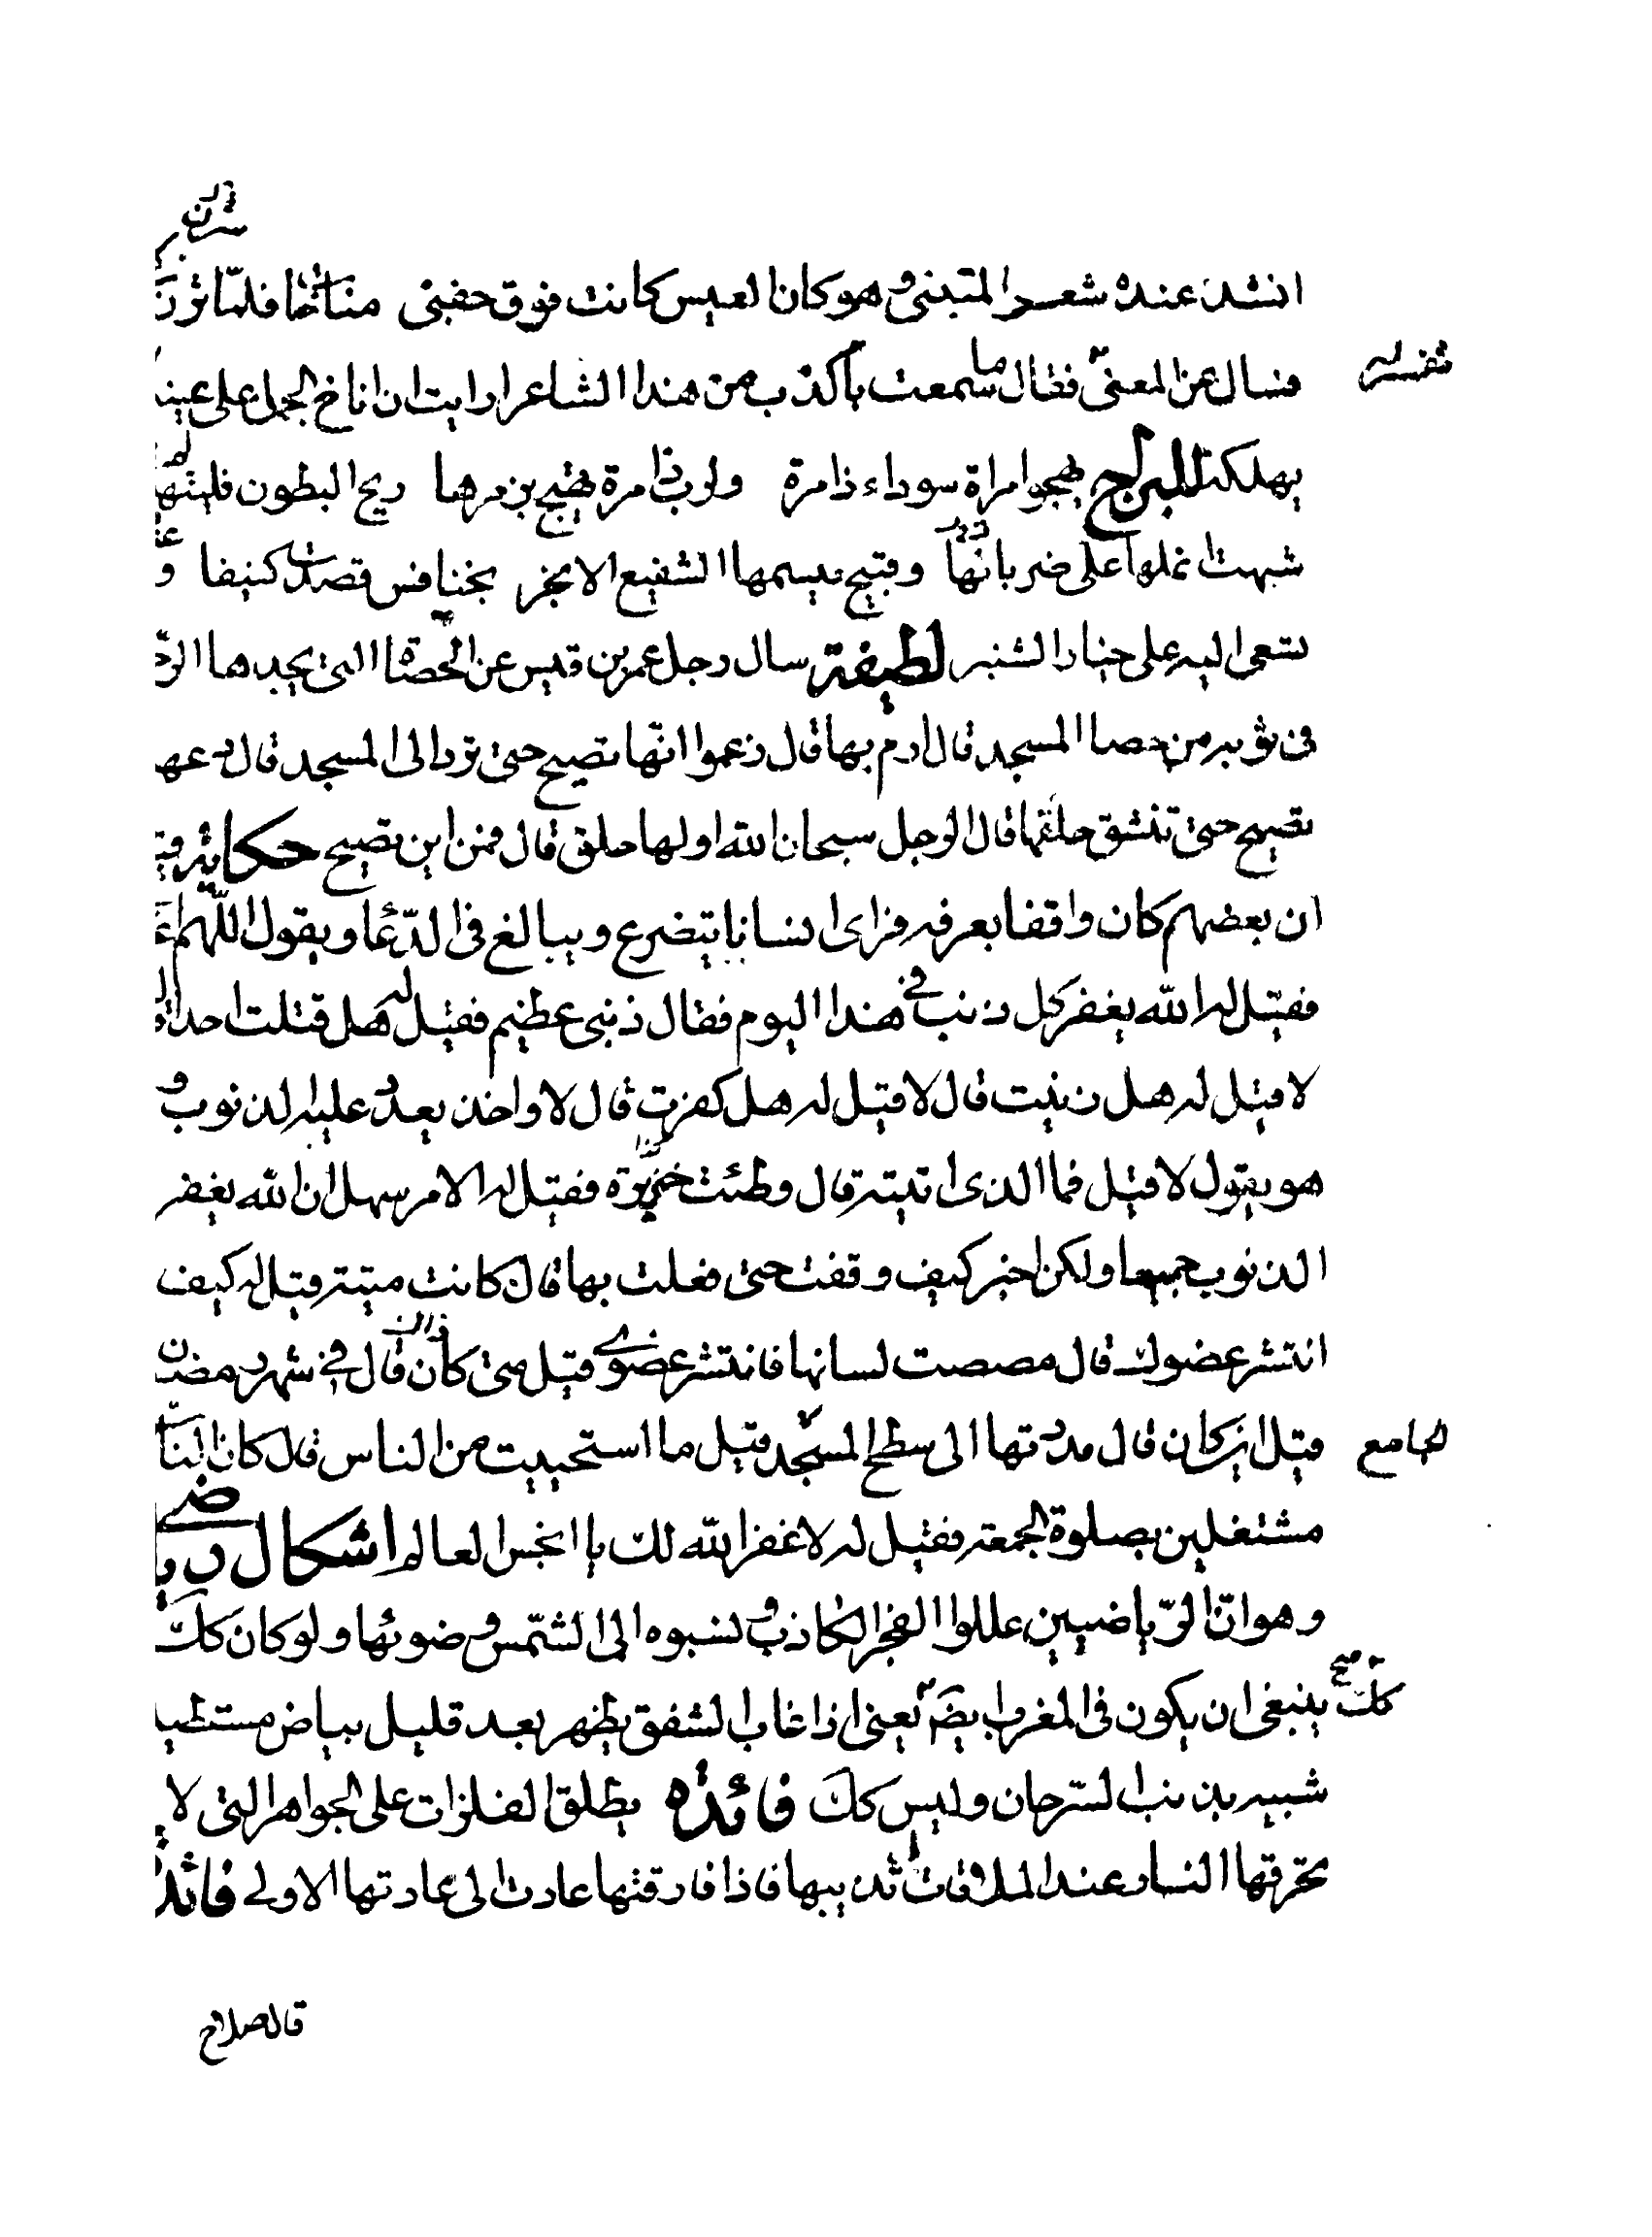 انشد عنده شعر المتنبی و هو كان العيس كانت فوق جفنی مناخا فلما ثرن
سالن
فسال عن المعنیّ فقال ما سمعت باكذب من هذا الشاعر ارايت ان اناخ الجمل علی عينه
نفسه
يهلكه السراج يهجو امراة سوداء ذامرة
ريح البطون فليتها لم
شبهت نملها علی ضرباتها وقبيح مبسمها الشفيع الابخر بخنافس قصدت كنيفا و
تسعی اليه علی خيار الشنبر لطيفة سال رجل عمر بن قيس عن الحصاة التی يجدها الرجل
فی ثوبه من حصا المسجد قال ارم بها قال زعموا انّها تصيح حتی ترد الی المسجد قال دعها
تصيح حتی تنشق حلقها قال الرجل سبحان الله اولها حلق قال فمن اين تصيح حكاية قيل
ان بعضهم كان واقفا بعرفه فرای انسانا يتضرع و يبالغ فی الدّعا ويقول اللّهم
فقيل له الله يغفر كل ذنب فی هذا اليوم فقال ذنبی عظيم فقيل له هل قتلت احدا قال
لا قيل له هل زنيت قال لا قيل له هل كفرت قال لا واخذ يعدّ عليه الذنوب و
هو يقول لا قيل فما الذی اتيته قال وطئت خنزيرة فقيل له الامر سهل ان الله يغفر
الذنوب جميعا ولكن اخبر كيف وقفت حتی فعلت بها قال كانت ميتة قيل له كيف
انتشر عضوك قال مصصت لسانها فانتشر عضوی قيل متی كان ذلك قال فی شهر رمضان
قيل اين كان قال مددتها الی سطح المسجد قيل ما استحييت من الناس قال كان الناس
الجامع
مشتغلين بصلوة الجمعة فقيل له لا غفر الله لك يا انجس العالم اشكال رياضی
وهو انّ الرّياضيين عللوا الفجر الكاذب و نسبوه الی الشّمس و ضوئها و لو كان كك
كك صح
ينبغی ان يكون فی المغرب ايضّ يعنی اذا غاب الشفق يظهر بعد قليل بياض مستطيل
شبيه بذنب السّرحان وليس كك فائده يطلق الفلزات علی الجواهر التی لا
يحرقها النار عند الملاقات ثم تذيبها فاذا فارقتها عادت الی عادتها الاولی فائده
قال صلاح